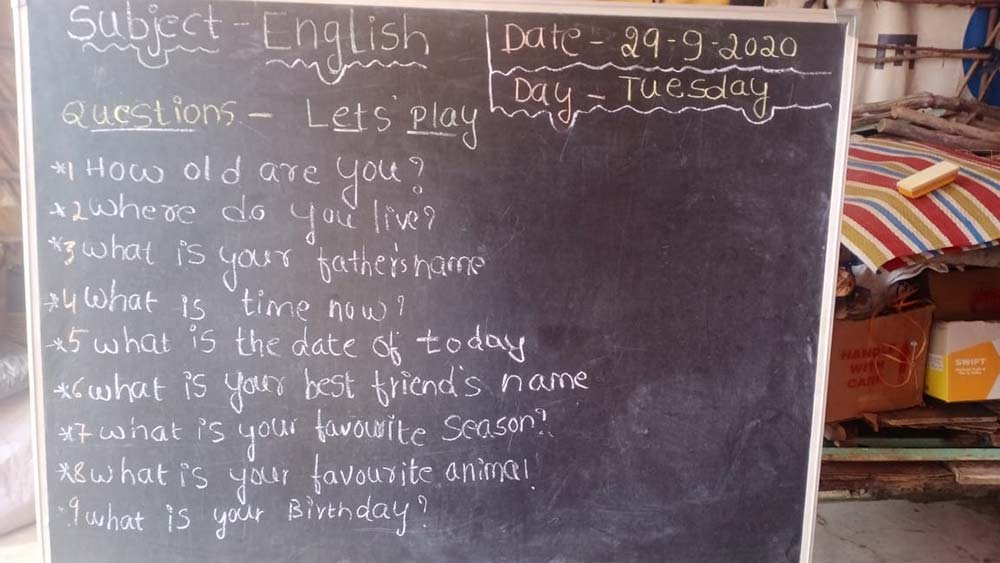 Subject - English
Date - 29-9-2020
Day - Tuesday
Questions - Lets' play
*1 How old are you?
*2 where do you live?
*3 what is your father's name
*4 what is time now?
*5 what is the date of today
*6 what is your best friend's name
*7 what is your favourite season?
*8 what is your favourite animal
*9 what is your Birthday?
HAND
WITH
CARE
SWIFT